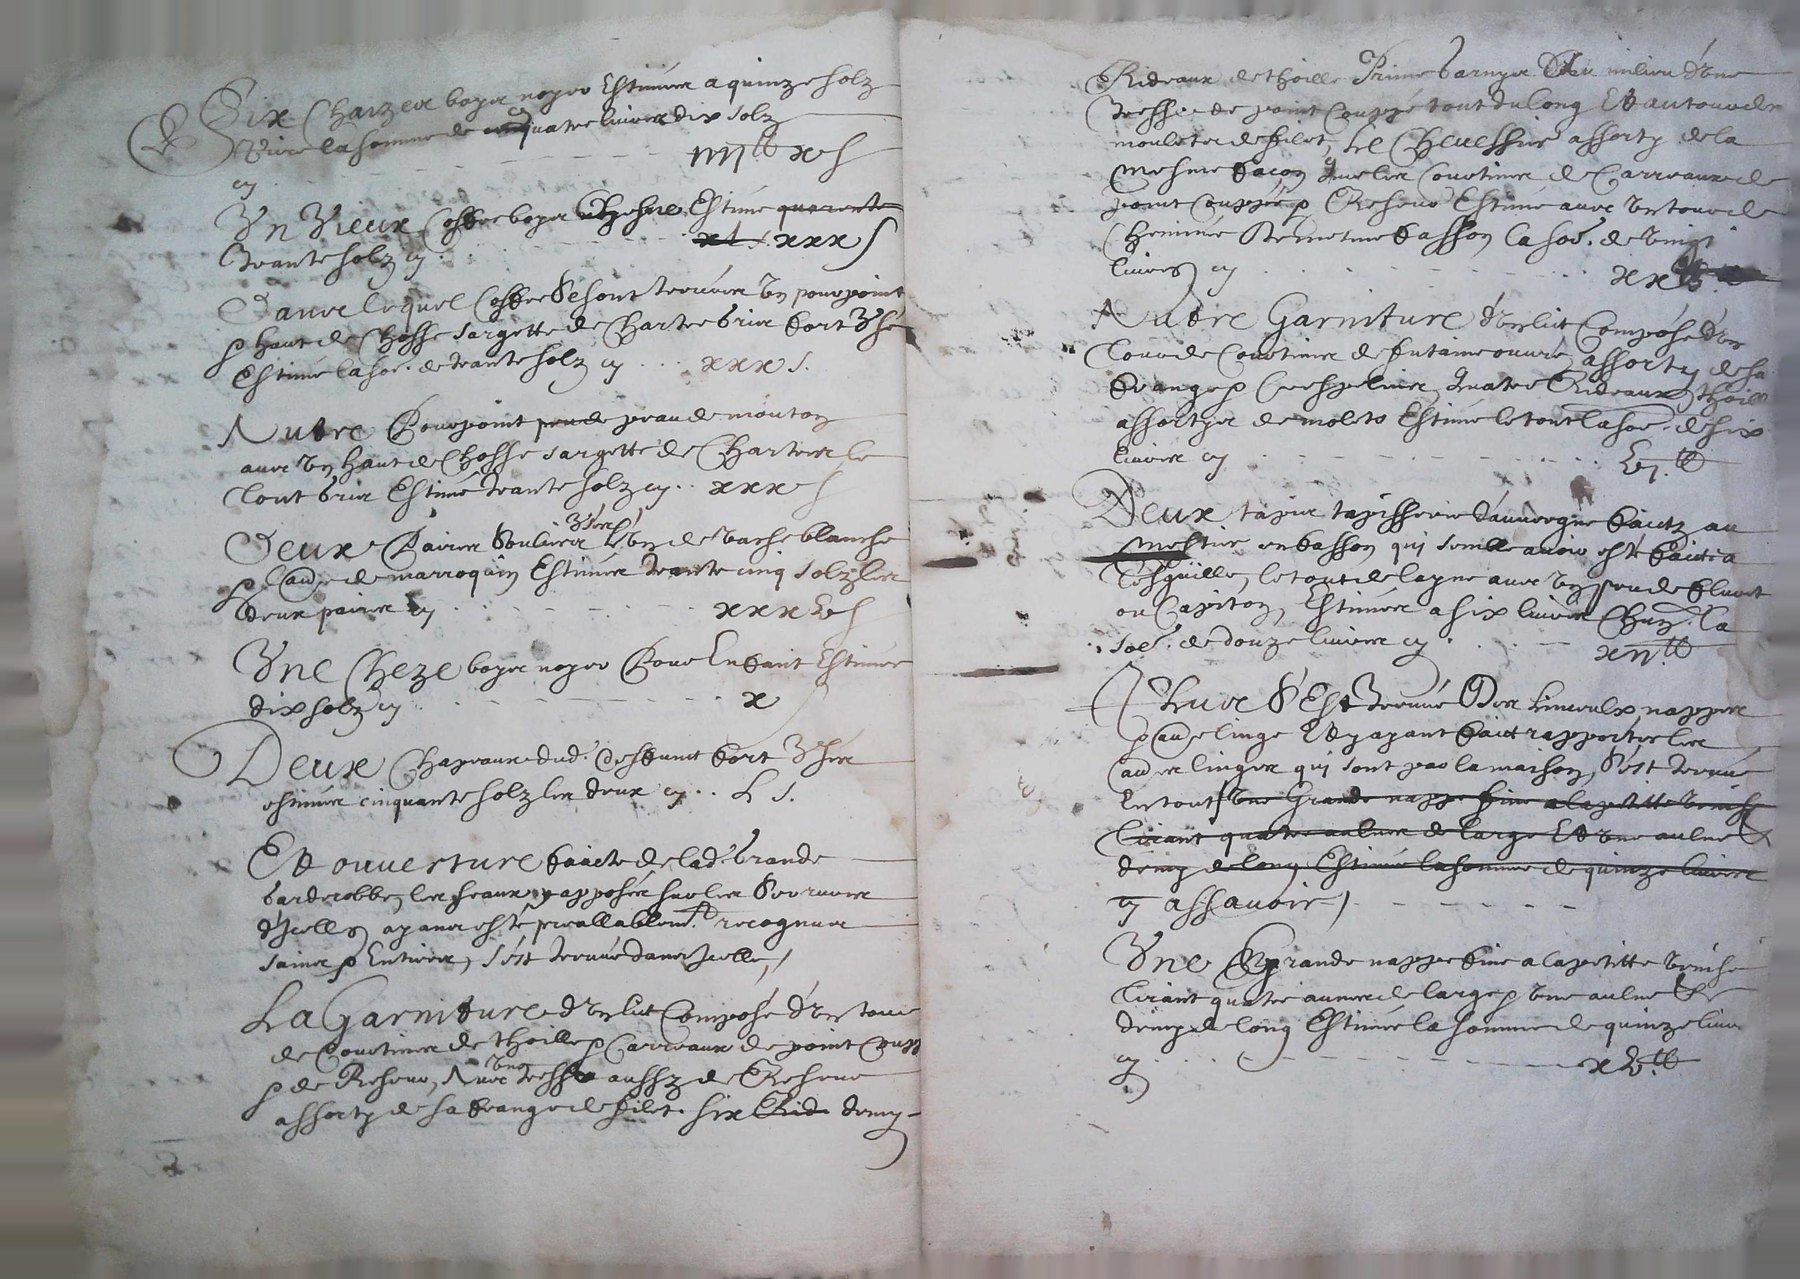 Six Chaizes boys noyer Estimées a quinze solz
pièce la somme de quatre livres dix solz
cy iiij lt x s
Un Vieux Coffre boys chesne Estimé quarante
trante solz cy xl xxx s
Dans lequel Coffre se sont trouvés un pourpoint
& haut de chosse sargette de Chartres bris fort usé
Estimé la soe. de trante solz cy xxx s.
Autre Pourpoint peau de mouton
avec un haut de chosse sargette de Chartres le
tout bris Estimé trante solz cy xxx s
usés
Deux Paires Souliers l'un de vache blanche
& l'autre de marroquin Estimés trante cinq solz les
deux paires cy xxxv s
Une Cheze boys noyer Pour Enfant Estimée
dix solz cy x s
Deux Chapeaux dud. deffunct fort usés
estimés cinquante solz les deux cy L s.
Et ouverture faicte de lad. grande
garderobbe, les seaux y apposés sur les serrures
d'Icelle, ayans esté preallablemt. recognues
saines & Entieres, s'est trouvé dans Icelle,
La Garniture d'un lict Composé d'un tour
de Courtines de thoille & Carreaux de point coupp
une
& de Reseur, Avec tresse aussy de Reseur
assorty de sa frange de filet. six Rid demy
Rideaux de thoille Prime garnyes Au milieu d'une
tressse de point Couppé tout du long Et autour de
moulets de filet, Le Chevessier assorty de la
mesme façon que les Courtines de Carreaux de
point Couppé & Reseur Estimé avec un tour de
Cheminée de mesme fasson la soe. de vingt
livres cy xx lt
Autre Garniture d'un lict Composé d'un
tour de Courtines de futaine ouvré, assorty de sa
frange & Crespelines, quatre Rideaux thoille
assortyes de molets Estimé le tout la soe. de six
livres cy vj lt
Deux tapis tapisserie d'auvergne faictz au
mestier en fasson qui semble avoir esté faict a
l'esguille, le tout de layne avec un peu de fluret
ou Capiton, Estimés a six livres Chun. la
soe. de douze livres cy xij lt
Plus s'Est trouvé Des Linceulx, nappes
& autre linge Et y ayant faict rapporter les
autres linges qui sont par la maison, s'est trouvé
En tout une Grande nappe fine a la petitte Venise
tirant quatre aulnes de large Et une aulne &
demy de long Estimée la somme de quinze livres
cy assavoir
Une grande nappe fine a la petitte Venise
tirant quatre aunes de large & une aulne &
demy de long Estimée la somme de quinze livres
cy xv lt